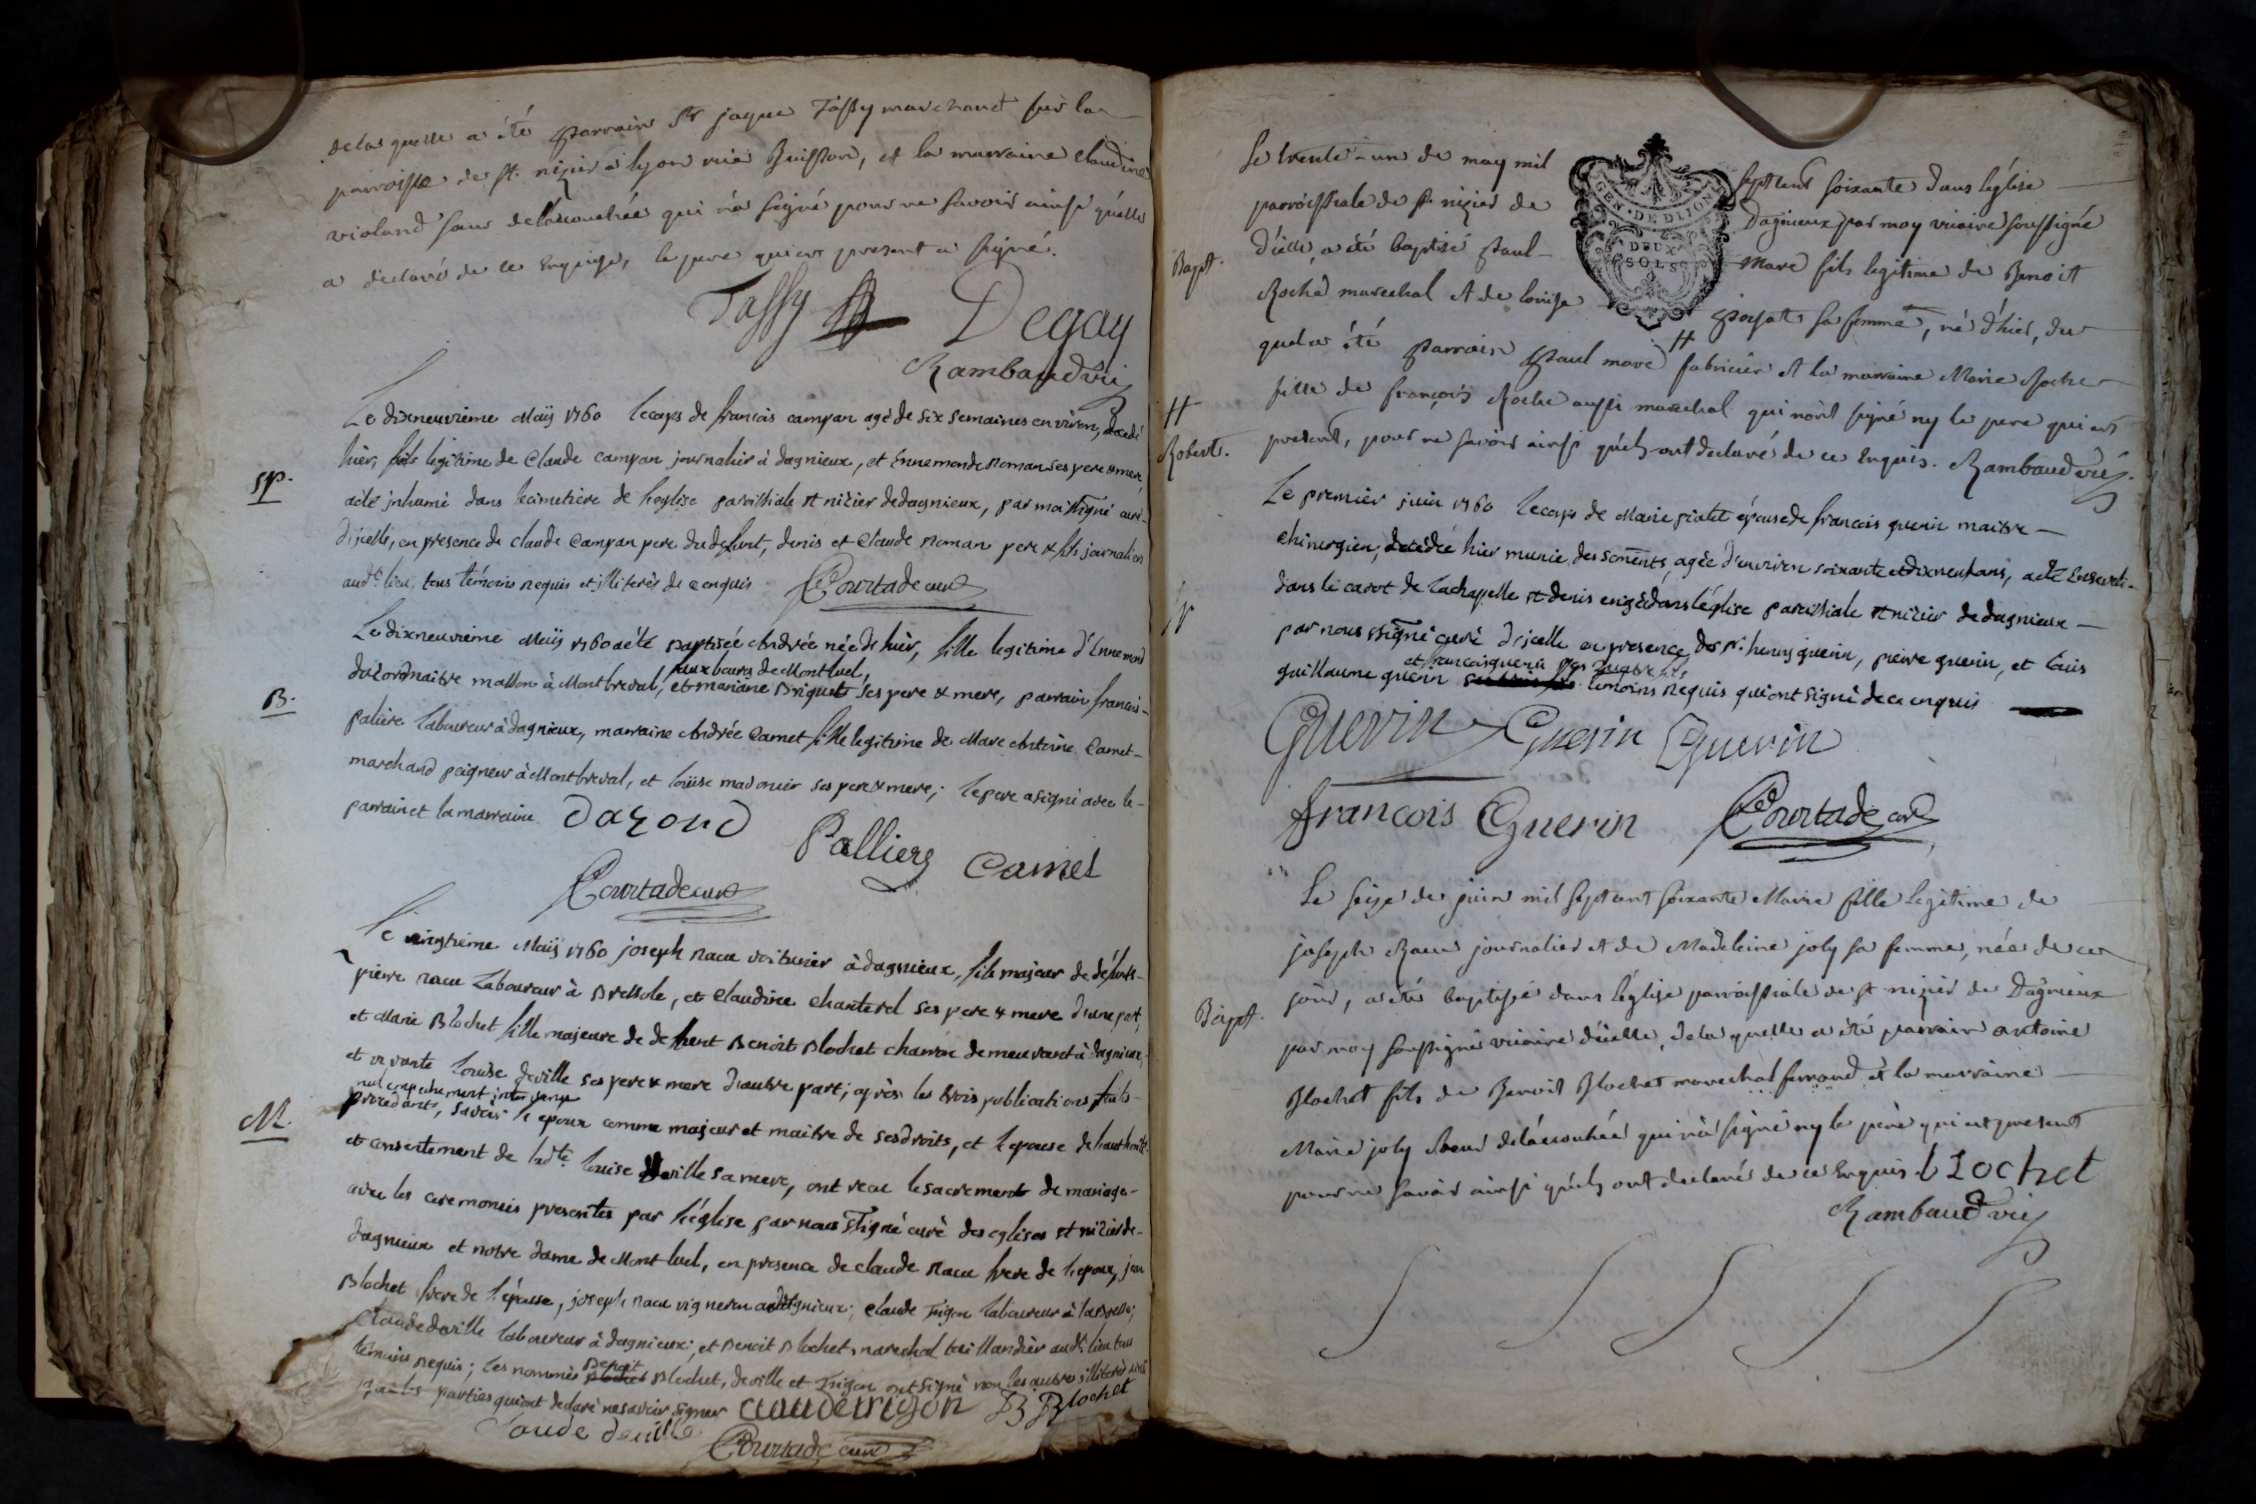 de laquelle a été parrain Sr jaque Tassy marchand sur la
parroisse de st. nizier à lyon ruë Buisson, et la marraine claudine
violand sœur de laccouchée qui n'a signé pour ne savoir ainsi qu'elle
a declaré de ce Enquise, le pere qui est present a signé.
Tassy Degay
Rambaud vic
Le dixneuvieme Maÿ 1760 le corps de francois campan agé de six semaines environ, decedé
hier, fils legitime de Claude campan journalier à dagnieux, et Ennemonde Roman ses pere & mere,
SP.
a eté inhumé dans le cimetiere de l'eglise paroissiale st nizier de dagnieux, par moi ssigné curé
d'icelle, en presence de claude campan pere du defunt, denis et Claude Roman pere & fils journaliers
aud. lieu, tous témoins requis et illiterés de ce enquis Courtade curé
Le dixneuvieme Maÿ 1760 a été Baptisée Andrée née d'hier, fille legitime d'Ennemond
aux bourg de Montluel,
dazord maitre masson à Montbreval, et mariane Briquet ses pere & mere, parrain francois
B.
paliere laboureur à dagnieux, marraine Andrée Camet fille legitime de Marc Antoine Camet
marchand peigneur à Montbreval, et loüise madonier ses pere & mere; le pere a signé avec le
parrain et la marraine Dazond Palliere Camet
Courtade curé
Le vingtieme Maÿ 1760 joseph Racu voiturier à dagnieux, fils majeur de défunts
pierre racu laboureur à Bressole, et Claudine chanterel ses pere & mere d'une part,
et Marie Blochet fille majeure de defunt Benoit Blochet charron demeurant à dagnieux,
et vivante loüise deville ses pere & mere d'autre part; après les trois publications faites
nul empechement
procedants, savoir l'epoux comme majeur et maitre de ses droits, et l'epouse de l'authorité
M.
et consentement de lad.te louise deville sa mere, ont recu le sacrement de mariage
avec les ceremonies presentes par l'église par nous ssigné curé des eglises st nizier de
dagnieux et notre dame de Montluel, en presence de claude Racu frere de l'epoux, jean
Blochet frere de l'épouse, joseph racu vigneron a dagnieux; claude Trigon laboureur à la Boisse;
Claude deville laboureur à dagnieux; et Benoit Blochet marechal taillandier aud. lieu tous
Benoit
temoins requis; les nommés Blochet, deville et Trigon ont signé non les autres illiterés
les parties qui ont declaré ne savoir signer claude trigon B Blochet
Claude deville
Courtade curé
Le trente-un de may mil sept cent soixante dans l'église
GEN. DE DIJON
DEUX
SOLS
parroissiale de st. nizier de Dagnieux par moy vicaire soussigné
Bapt.
d'elle, a été baptisé paul marc fils legitime de Benoitt
Roche marechal et de loüise poyat sa femme, né d'hier, du
quel a été parrain paul marc # fabricier et la marraine Marie Roche
#
Robert.
fille de françois Roche aussi marechal qui n'ont signé ny le pere qui est
present, pour ne savoir ainsi qu'ils ont declaré de ce Enquis. Rambaud vic.
Le premier juin 1760 le corps de Marie piatet épouse de francois guerin maitre
chirurgien, decedée hier munie des sements, agée d'environ soixante et dixneuf ans, a eté Enseveli
dans le caveot de la chapelle st denis erigé dans l'église paroissiale st nizier de dagnieux
SP
par nous ssigné curé d'icelle en presence des sr. henry guerin, pierre guerin, et louis
et francois guerin ses quatre fils
guillaume guerin temoins requis qui ont signé de ce enquis
Guerin Guerin Guerin
françois Guerin Courtade curé
Le seize de juin mil sept cent soixante Marie fille legitime de
joseph Racu journalier et de Madeleine joly sa femme, née de ce
Bapt.
jour, a été baptisé dans l'église parroissiale de st nizier de Dagnieux
par moy soussigné vicaire d'icelle, de la quelle a été parrain antoine
Blochet fils de Benoit Blochet marechal ferrand et la marraine
Marie joly sœur de laccouchée qui n'a signé ny le père qui est present
pour ne savoir ainsi qu'ils ont declarés de ce Enquis blochet
Rambaud vic